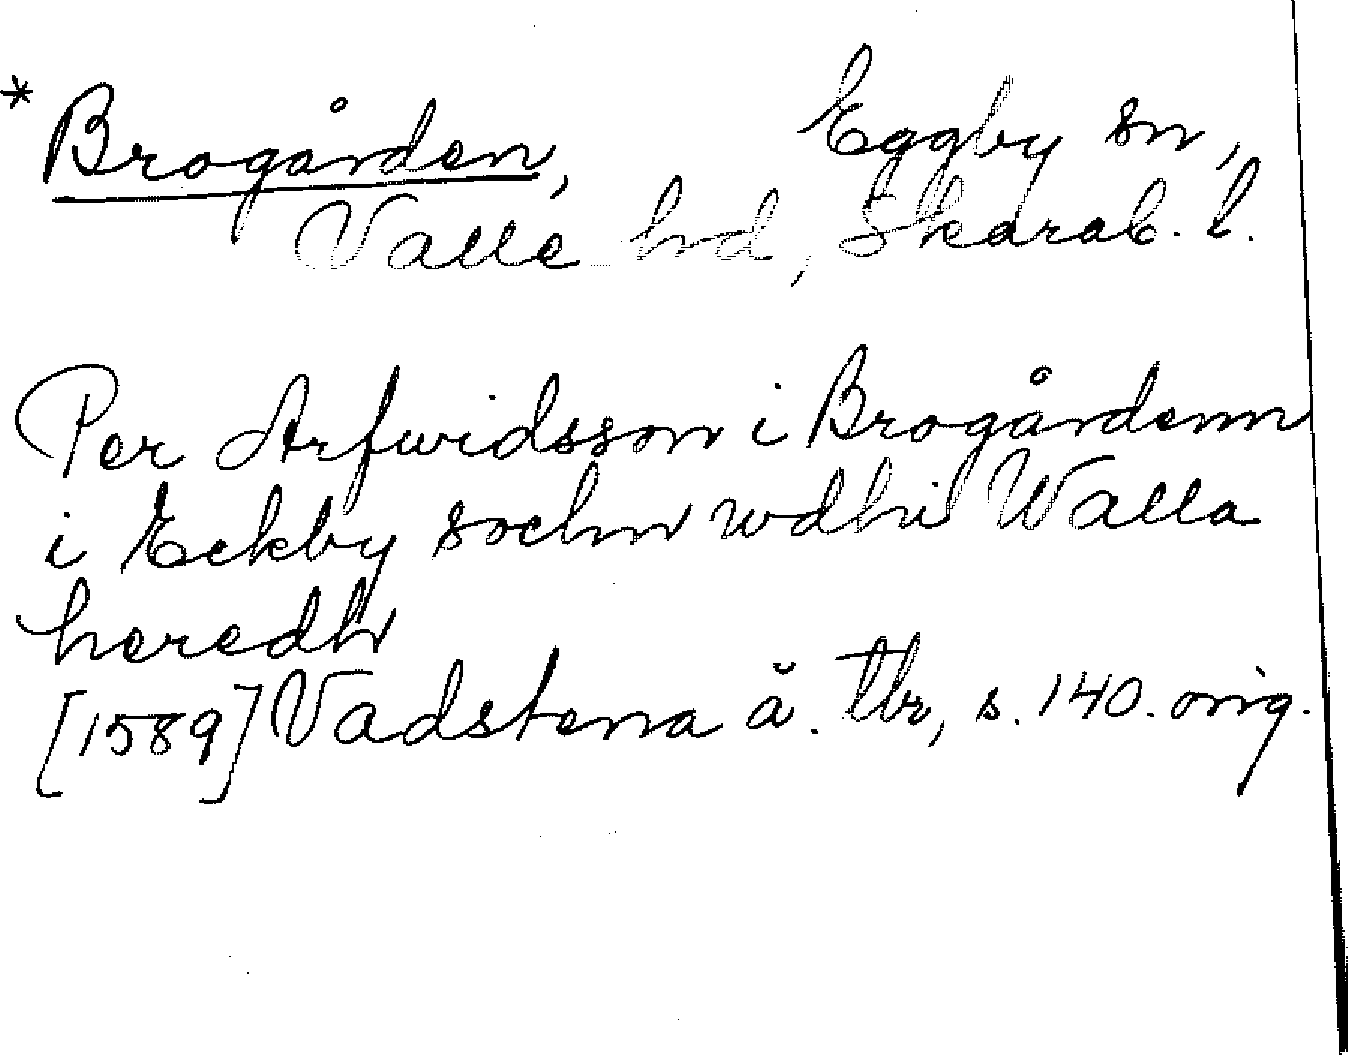 * Brogården, Eggby sn,
Valle hd, Skarab. l.
Per Arfwidsson i Brogårdenn
i Eckby sochn wdhi Walla
heredh
[1589] Vadstena ä. tbr, s. 140. orig.